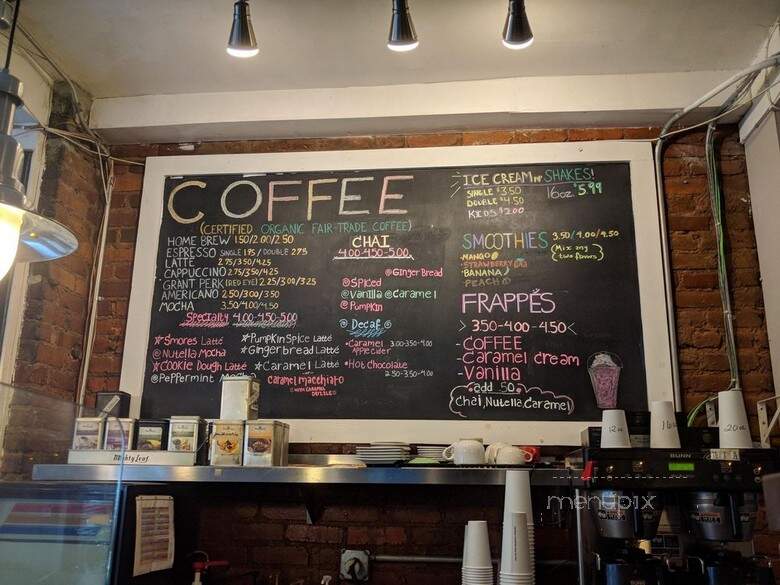 COFFEE
(CERTIFIED ORGANIC FAIR-TRADE COFFEE)
HOME BREW 1.50/2.00/2.50
ESPRESSO SINGLE 1.95 / DOUBLE 2.75
LATTE 2.75/3.50/4.25
CAPPUCCINO 2.75/3.50/4.25
"GRANT PERK (RED EYE) 2.25/3.00/3.25
AMERICANO 2.50/3.00/3.50
MOCHA 3.50/4.00/4.50
Specialty 4.00-4.50-5.00
Smores Latté
Nutella Mocha
COOKIE DOUGH Latté
PePPermint
PumPkin SPice Latté
Gingerbread Latté
Caramel Latté
Caramel macchiato
CHAI
4.00-4.50-5.00
GingerBread
SPiced
Vanilla
Caramel
PumPkin
Decaf
Caramel 3.00-3.50-4.00
APPle cider
Hot Chocolate
2.50-3.50-4.00
ICE CREAM SHAKES!
SINGLE $3.50
DOUBLE $4.50
KIDS $2.00
16oz. $5.99
SMOOTHIES 3.50/4.00/4.50
(Mix any two flavors)
MANGO
STRAWBERRY
BANANA
PEACH
FRAPPÉS
> 3.50-4.00-4.50 <
-COFFEE
-Caramel cream
-Vanilla
add .50
Chai, Nutella, Caramel
12oz
16
20oz
Mighty Leaf
BUNN
menupix